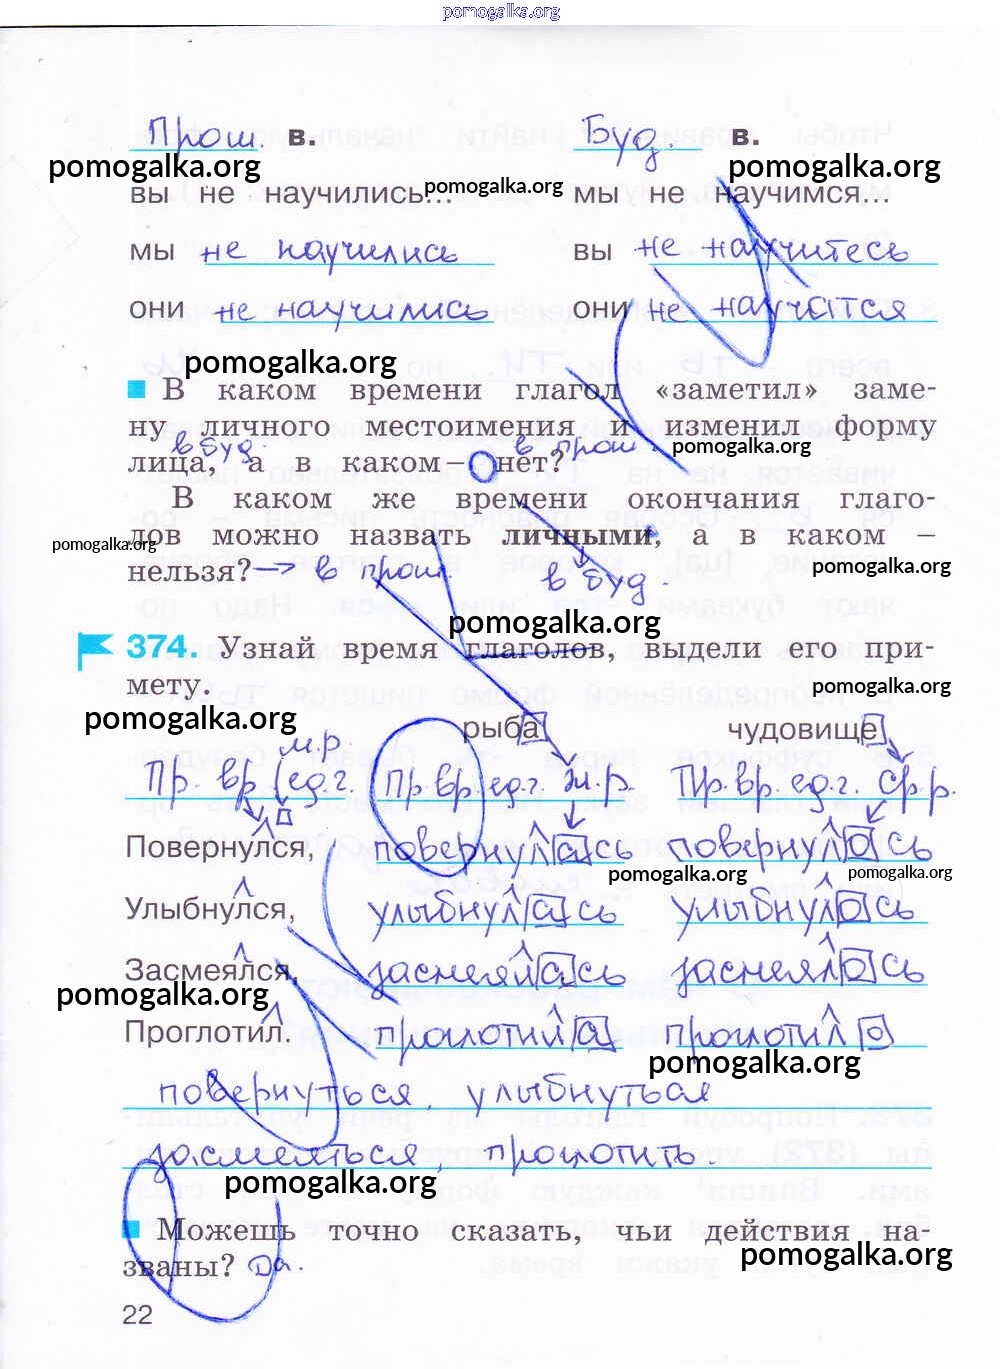 pomogalka.org
Прош. в. Буд. в.
pomogalka.org pomogalka.org
вы не научились... pomogalka.org мы не научимся...
мы не научились вы не научитесь
они не научились они не научатся
pomogalka.org
В каком времени глагол «заметил» заме-
ну личного местоимения и изменил форму
в буд. в прош. pomogalka.org
лица, а в каком – нет?
В каком же времени окончания глаго-
лов можно назвать личными, а в каком –
pomogalka.org
нельзя? → в прош. в буд. pomogalka.org
pomogalka.org
374. Узнай время глаголов, выдели его при-
мету. pomogalka.org
pomogalka.org рыба чудовище
м.р.
Пр. вр. ед.г. Пр.вр. ед.г. ж.р. Пр.вр. ед.г. ср.р.
Повернулся, повернулась повернулось
pomogalka.org pomogalka.org
Улыбнулся, улыбнулась улыбнулось
Засмеялся, засмеялась засмеялось
pomogalka.org
Проглотил. проглотила проглотило
pomogalka.org
повернуться, улыбнуться
засмеяться, проглотить.
pomogalka.org
Можешь точно сказать, чьи действия на-
pomogalka.org
званы? Да.
22